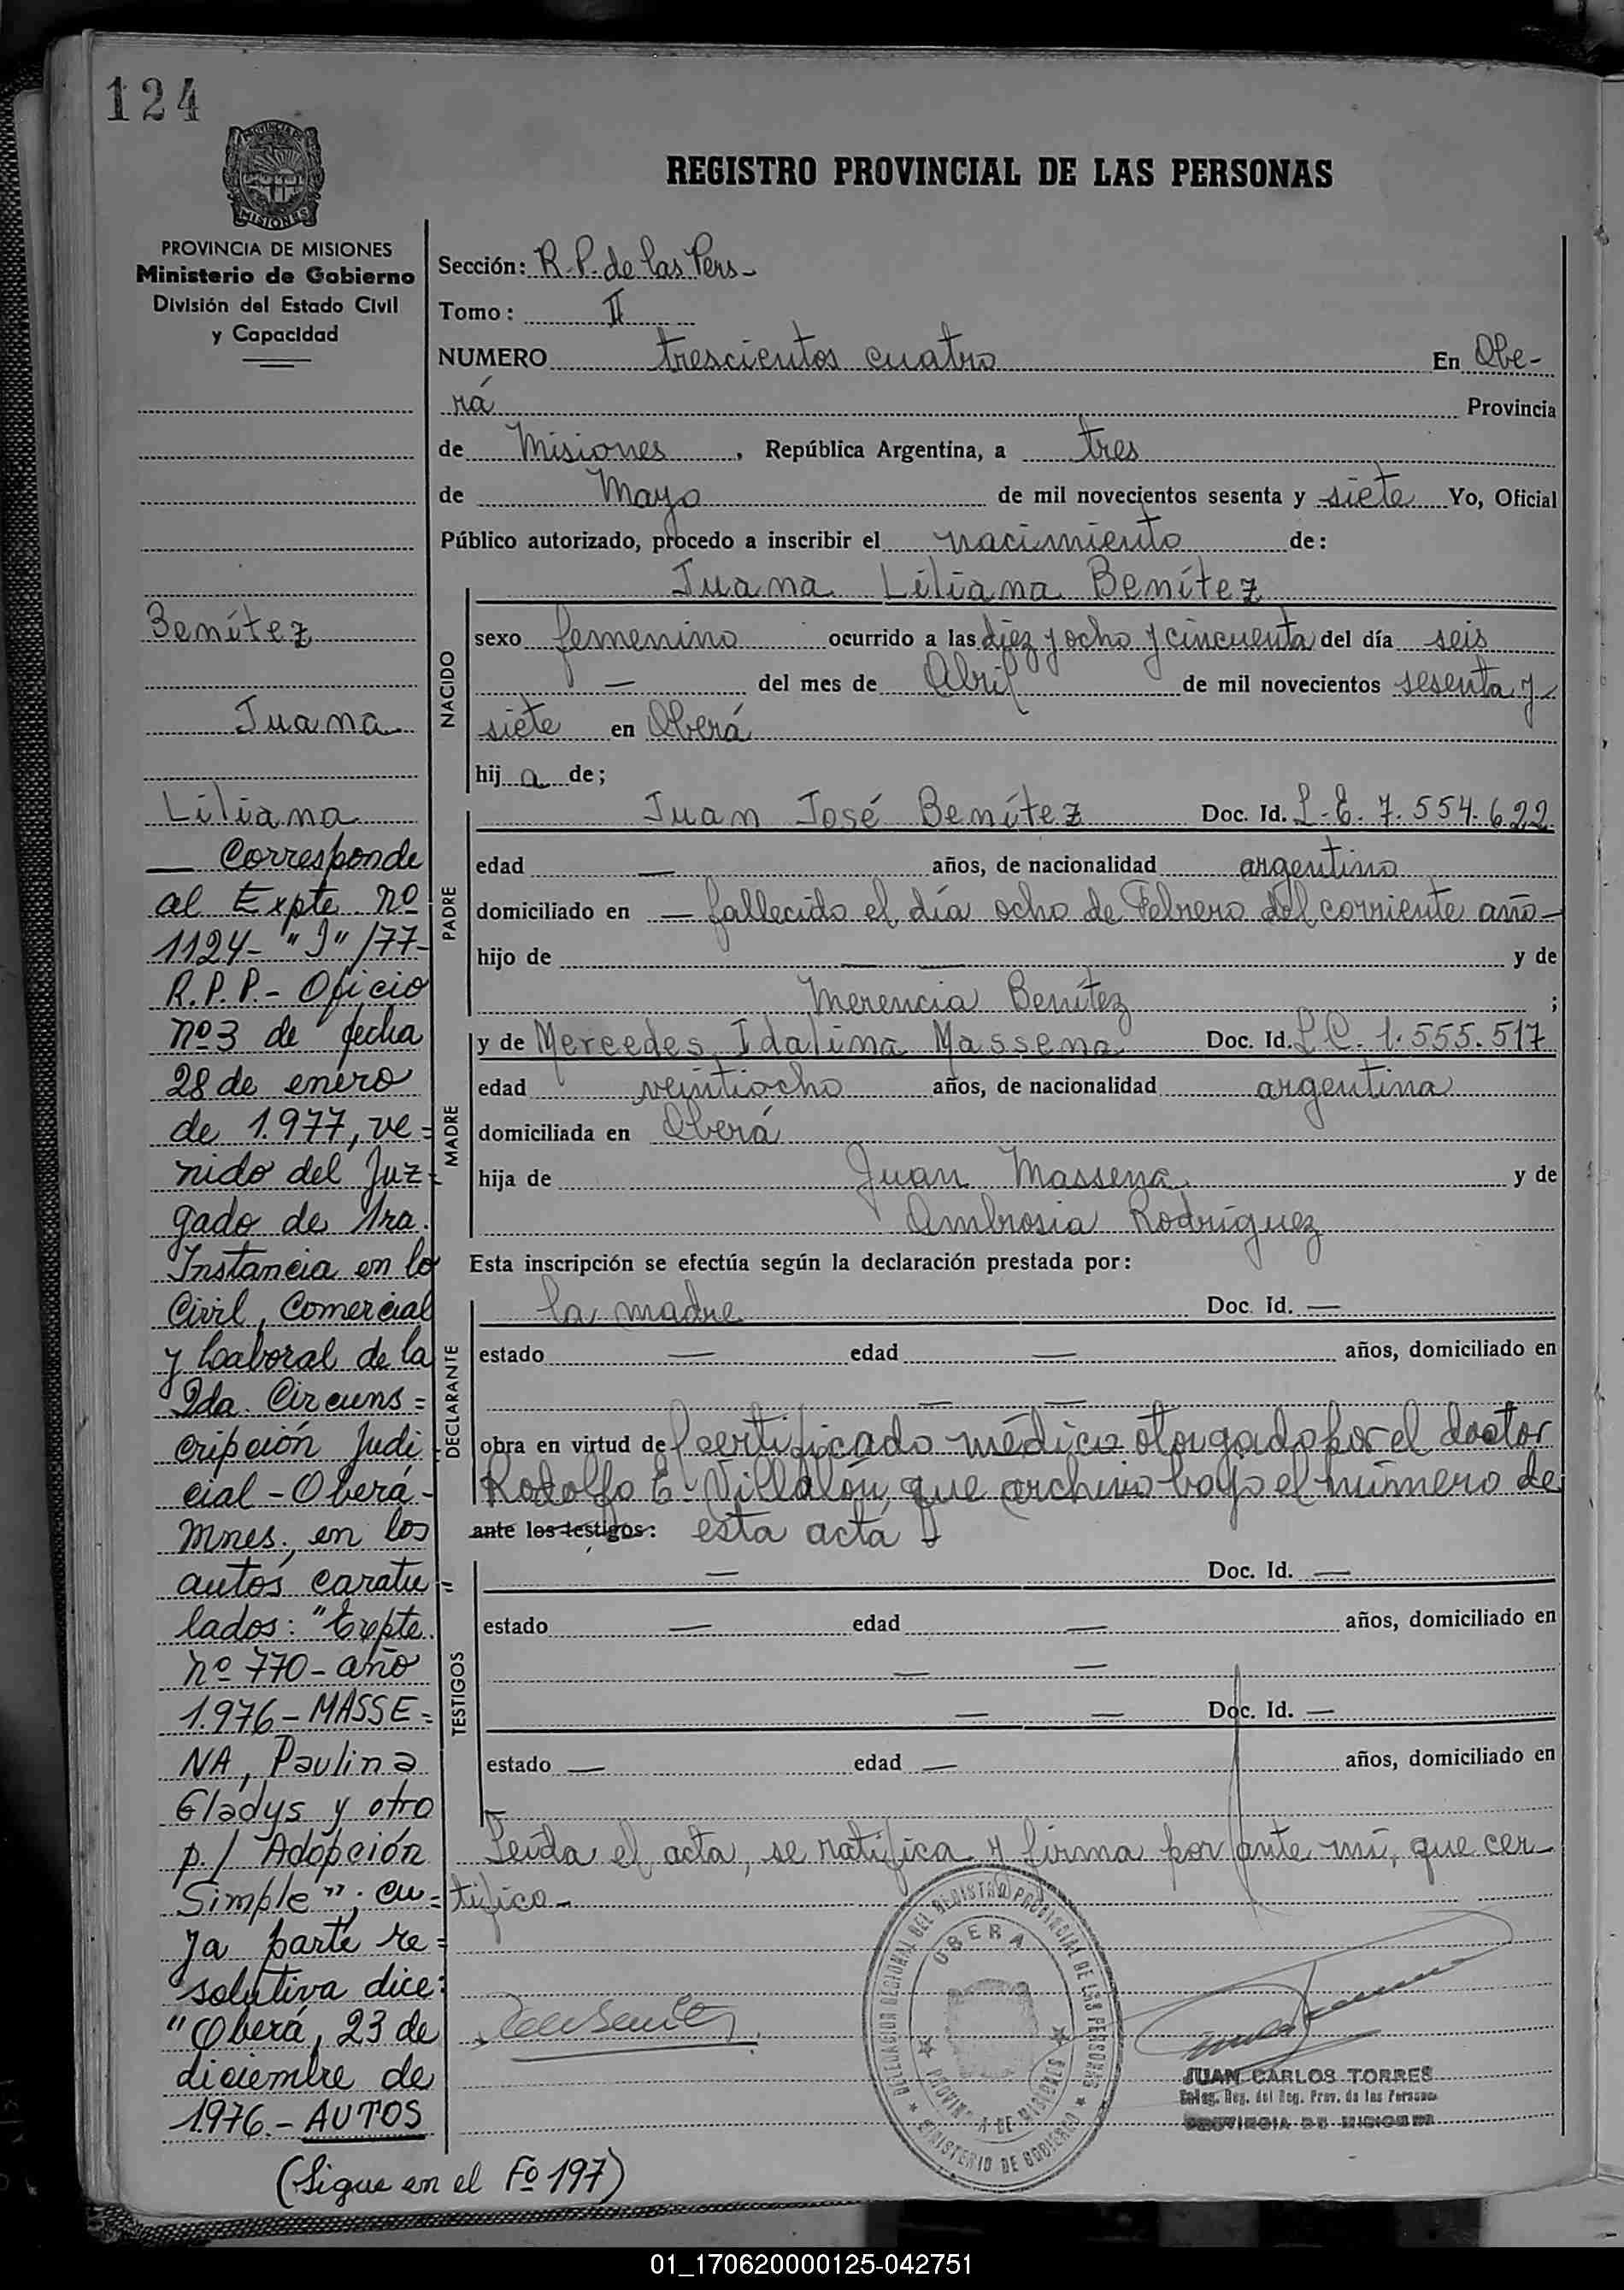 124
REGISTRO PROVINCIAL DE LAS PERSONAS
PROVINCIA DE MISIONES
Ministerio de Gobierno
División del Estado Civil
y Capacidad
Benítez
Juana
Liliana
— Corresponde
al Expte nº
1124- "J" /77-
R.P.P.- Oficio
nº3 de fecha
28 de enero
de 1.977, ve=
nido del Juz=
gado de 1ra.
Instancia en lo
Civil, Comercial
y Laboral de la
2da. Circuns=
cripción Judi
cial - Oberá-
Mnes., en los
autos caratu=
lados: "Expte.
nº 770- año
1.976- MASSE=
NA, Paulina
Gladys y otro
p./ Adopción
Simple"; cu=
ya parte re=
solutiva dice:
"Oberá, 23 de
diciembre de
1976.- AUTOS
(Sigue en el Fº 197)
Sección: R.P. de las Pers-
Tomo: II
NUMERO trescientos cuatro En Obe-
rá Provincia
de Misiones, República Argentina, a tres
de Mayo de mil novecientos sesenta y siete Yo, Oficial
Público autorizado, procedo a inscribir el nacimiento de:
Juana Liliana Benítez
NACIDO
sexo femenino ocurrido a las diez y ocho y cincuenta del día seis
— del mes de Abril de mil novecientos sesenta y
siete en Oberá
hij a de;
PADRE
Juan José Benítez Doc. Id. L.E. 7.554.622
edad — años, de nacionalidad argentino
domiciliado en — fallecido el día ocho de Febrero del corriente año-
hijo de — — y de
Merencia Benítez ;
MADRE
y de Mercedes Idalina Massena Doc. Id. L.C. 1.555.517
edad veintiocho años, de nacionalidad argentina
domiciliada en Oberá
hija de Juan Massena y de
Ambrosia Rodríguez
Esta inscripción se efectúa según la declaración prestada por:
DECLARANTE
la madre Doc. Id. —
estado — edad — años, domiciliado en
— —
obra en virtud del certificado médico otorgado por el doctor
Rodolfo E. Villalón, que archivo bajo el número de
ante los testigos: esta acta
TESTIGOS
— Doc. Id. —
estado — edad — años, domiciliado en
— —
— — Doc. Id. —
estado — edad — años, domiciliado en
Leída el acta, se ratifica y firma por ante mí, que cer-
tifico-
DELEGACION REGIONAL DEL REGISTRO PROVINCIAL DE LAS PERSONAS
OBERA
PROVINCIA DE MISIONES
MINISTERIO DE GOBIERNO
JUAN CARLOS TORRES
Deleg. Reg. del Reg. Prov. de las Personas
PROVINCIA DE MISIONES
01_170620000125-042751